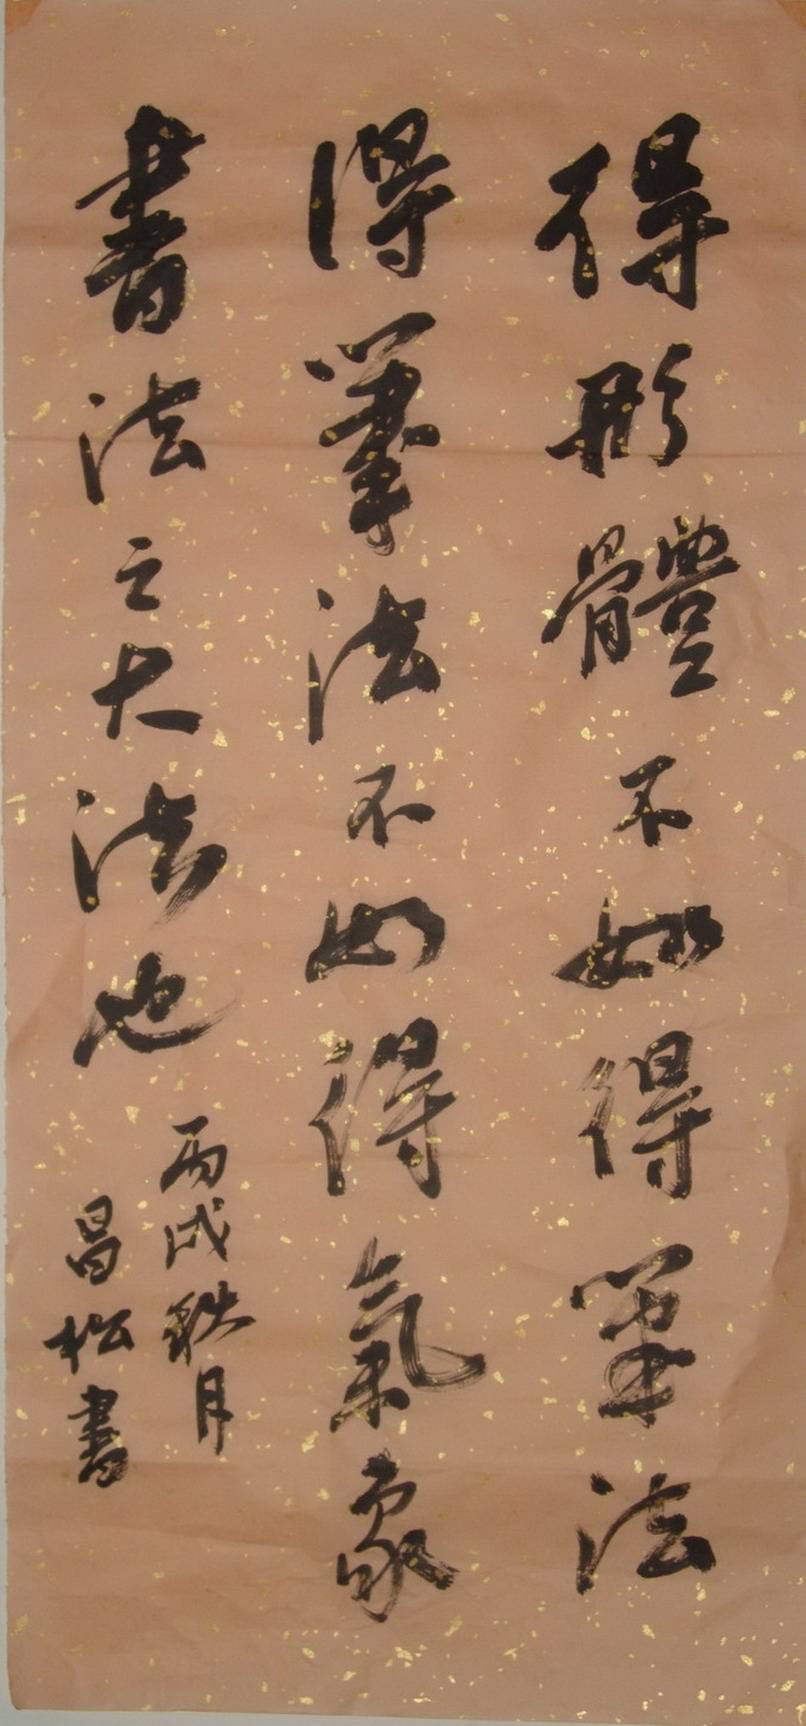 得形體不如得筆法
得筆法不如得氣象
書法之大法也
丙戌秋月
昌松書